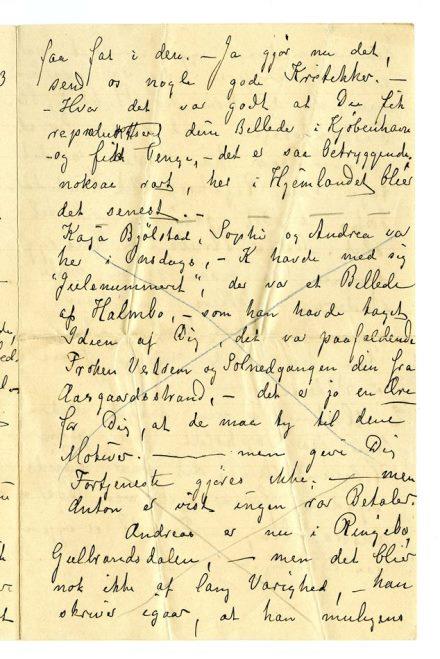 faa fat i den. — Ja gjør nu det,
send os nogle gode Kristtekker. —
— Hvor det var godt at Du fik
reproduktsert dine Billede i Kjøbenhavn
— og fik Penge, — det er saa betryggende,
noksaa rart, her i Hjemlandet blir
det senest. —
Kaja Bjølstad, Sophie og Andrea var
her i onsdags, — K havde med sig
"Julenummert", der var et Billede
af Halmbo, — som han havde taget
Ideen af Dig, det var paafaldende
Frøken Vestrem og Solnedgangen din fra
Aasgaardsstrand, — det er jo en Ære
for Dig, at de maa ty til dine
Motiver. — men give Dig
Fortjeneste gjøres ikke. — men
Anton er vist ingen rar Betaler.
Andreas er nu i Ringebo,
Gulbrandsdalen, — men det blir
nok ikke af lang Varighed, — han
skriver igaar, at han muligens